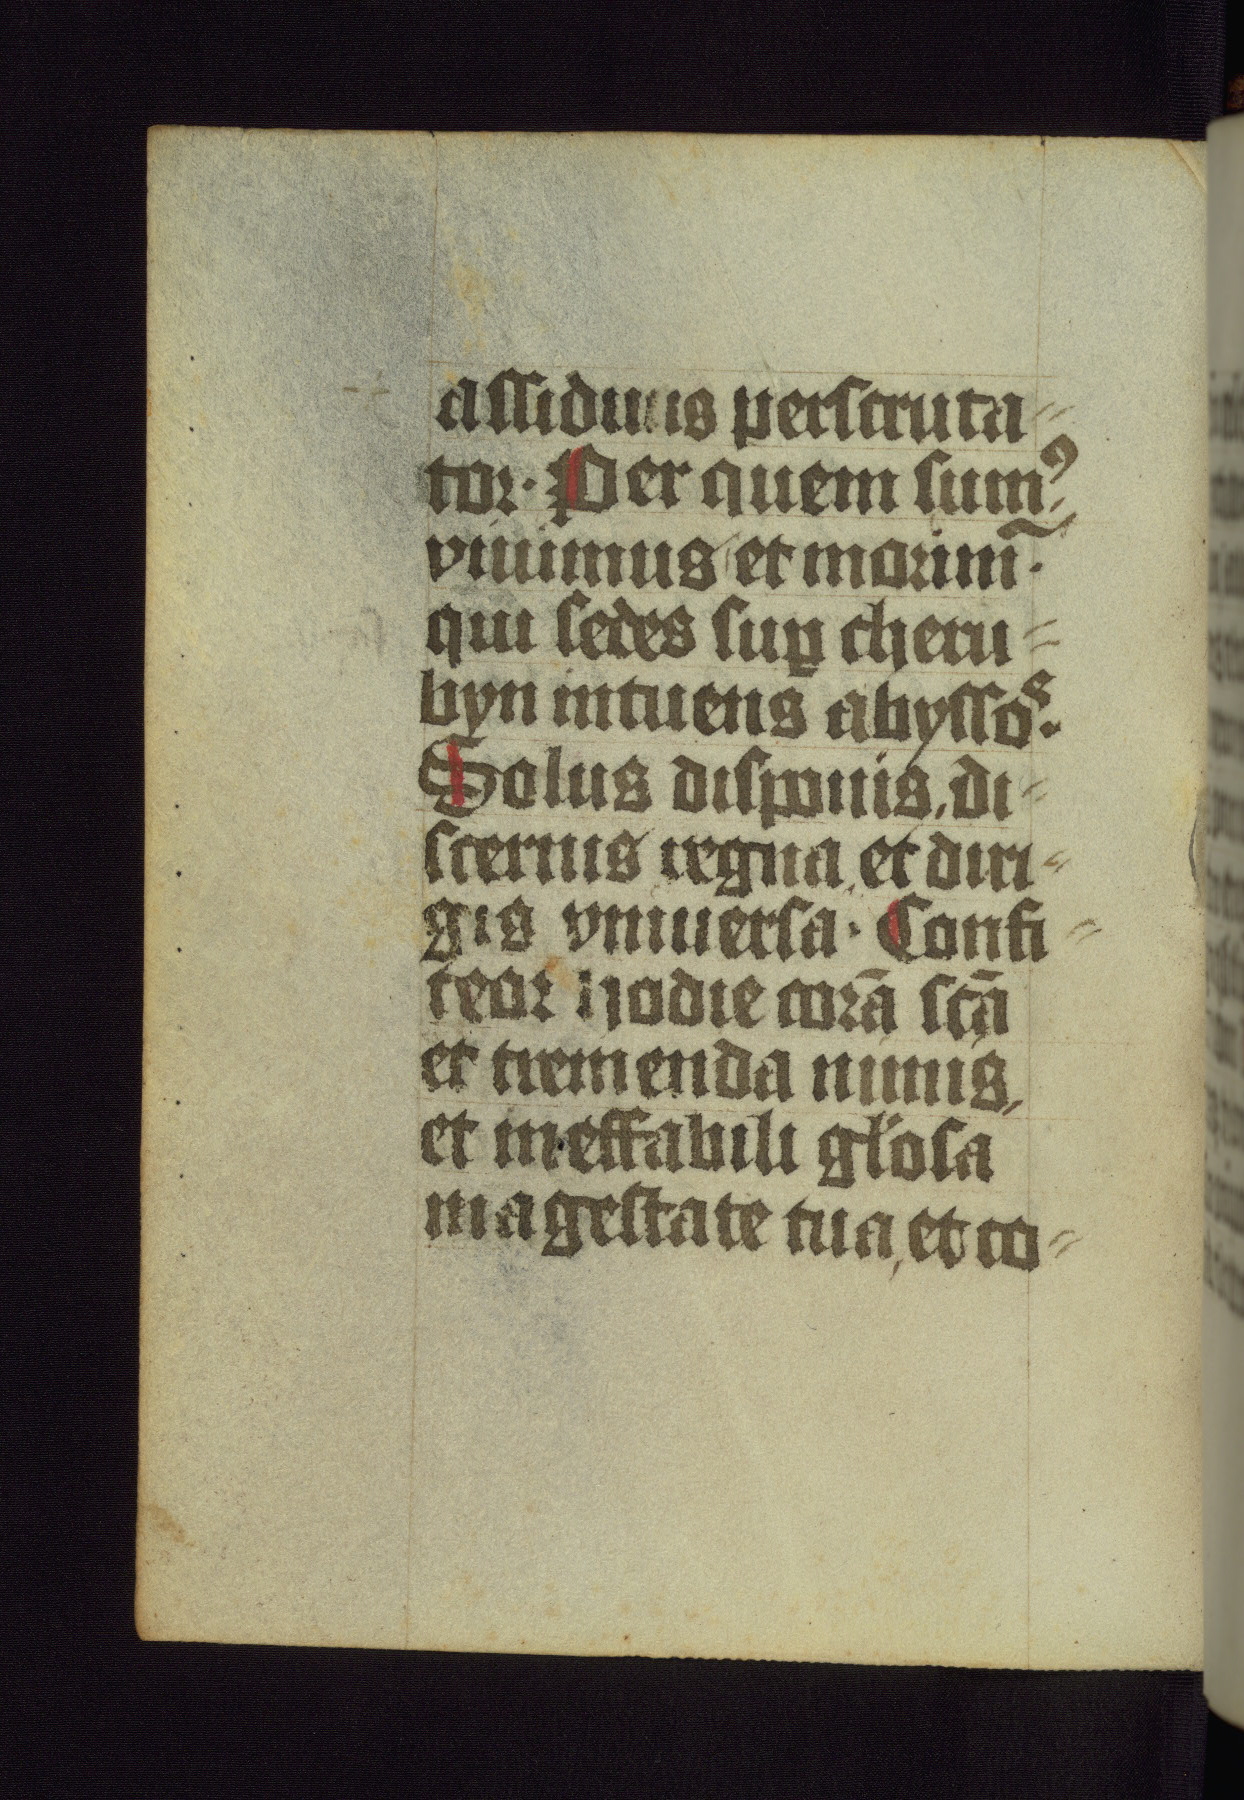 assiduus perscruta=
tor. Per quem sumꝰ,
viuimus et morim̃.
qui sedes suꝑ cheru=
byn intuens abyssoˢ.
Solus disponis, di=
scernis regna, et diri=
gis vniuersa. Confi=
teor hodie corā sc̄ā
et tremenda nimis,
et ineffabili gl'osa
magestate tua, et co=